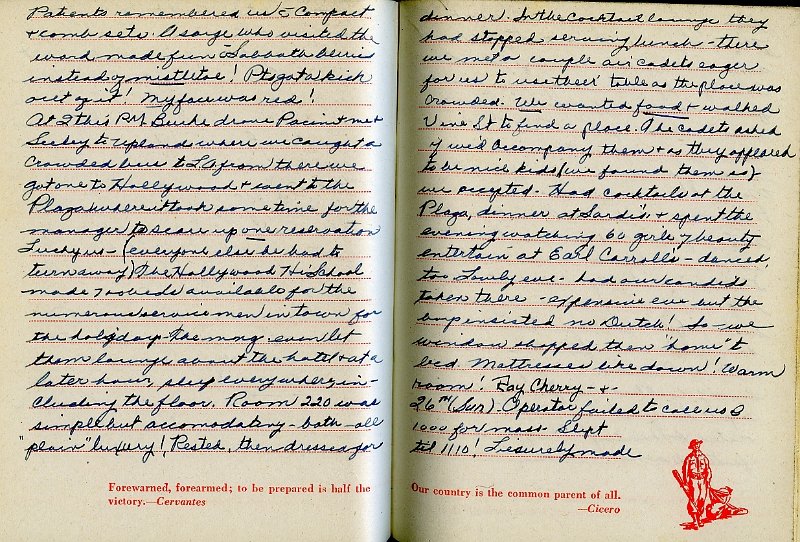 Patents remembered us c̄ Compact
+ comb sets. A sarge who visited the
ward made fun -
instead of mistletoe! Ptsgata kick
out of it! My face was red!
At 2 this P.M. Burke drove Pacini + me +
to Upland where we caught a
crowded bus to L.A. from there we
got one to Hollywood + went to the
Plaza where it took some time for the
manager to scare up one reservation
Lucky us - (everyone else he had to
turn away) The Hollywood Hi School
made 700 beds available for the
numerous service men in town for
the holiday. The mng. even let
them lounge about the hotel + at a
later hour, sleep everywhere in-
cluding the floor. Room 220 was
simple but accomodating - bath - all
"plain" luxury! Rested, then dressed for
Forewarned, forearmed; to be prepared is half the
victory.—Cervantes
dinner. In the Cocktail lounge they
had stopped serving lunch - there
we met a couple air cadets eager
for us to use their table as the place was
crowded. We wanted food + walked
Vine St to find a place. The cadets asked
if we'd accompany them + as they appeared
to be nice kids (we found them so)
we accepted. Had cocktails at the
Plaza, dinner at Sardi's, + spent the
evening watching 60 girls of beauty
entertain at Earl Carrolls - danced,
too. Lovely eve - had our candids
taken there - expensive eve but the
boys insisted no Dutch! So - we
window shopped then "home" to
bed. Mattresses like down! Warm
room! Ray Cherry - + -
26TH (Sun). Operator failed to call us @
1000 for mass. Slept
til 1110! Leisurely made
Our country is the common parent of all.
—Cicero